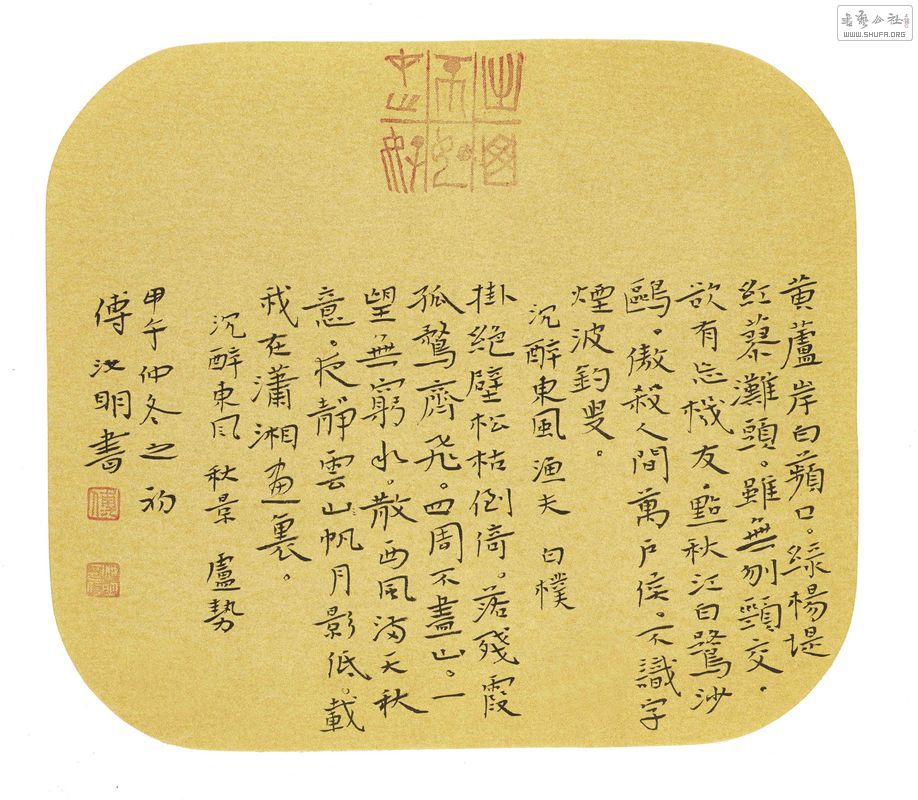 書藝公社
WWW.SHUFA.ORG
黄蘆岸白蘋口。綠楊堤
紅蓼灘頭。雖無刎頸交。
欲有忘機友。點秋江白鷺沙
鷗。傲殺人間萬户侯。不識字
煙波釣叟。
沉醉東風 漁夫 白樸
掛絕壁松枯倒倚。落殘霞
孤鶩齊飛。四周不盡山。一
望無窮水。散西風滿天秋
意。夜靜雲山帆月影低。載
我在瀟湘畫裏。
沉醉東風 秋景 盧勢
甲午仲冬之初
傅汝明書
傅